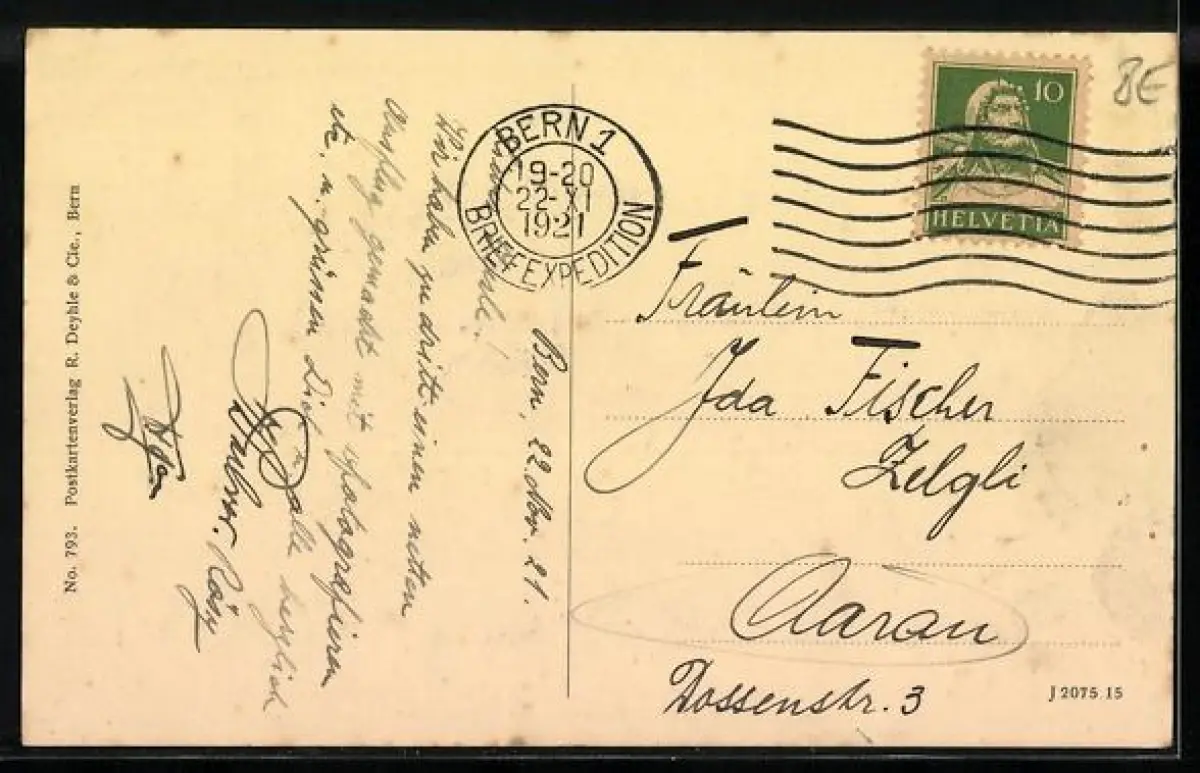 No. 793. Postkartenverlag R. Deyhle & Cie., Bern
Bern, 22. Nov. 21.
Wir haben zu dritt einen netten
Ausflug gemacht mit photografieren
etc. u. grüssen Dich alle herzlich
BERN 1
19-20
22-XI
1921
BRIEFEXPEDITION
10
HELVETIA
BE
Fräulein
Ida Fischer
Zelgli
Aarau
Dossenstr. 3
J 2075 15